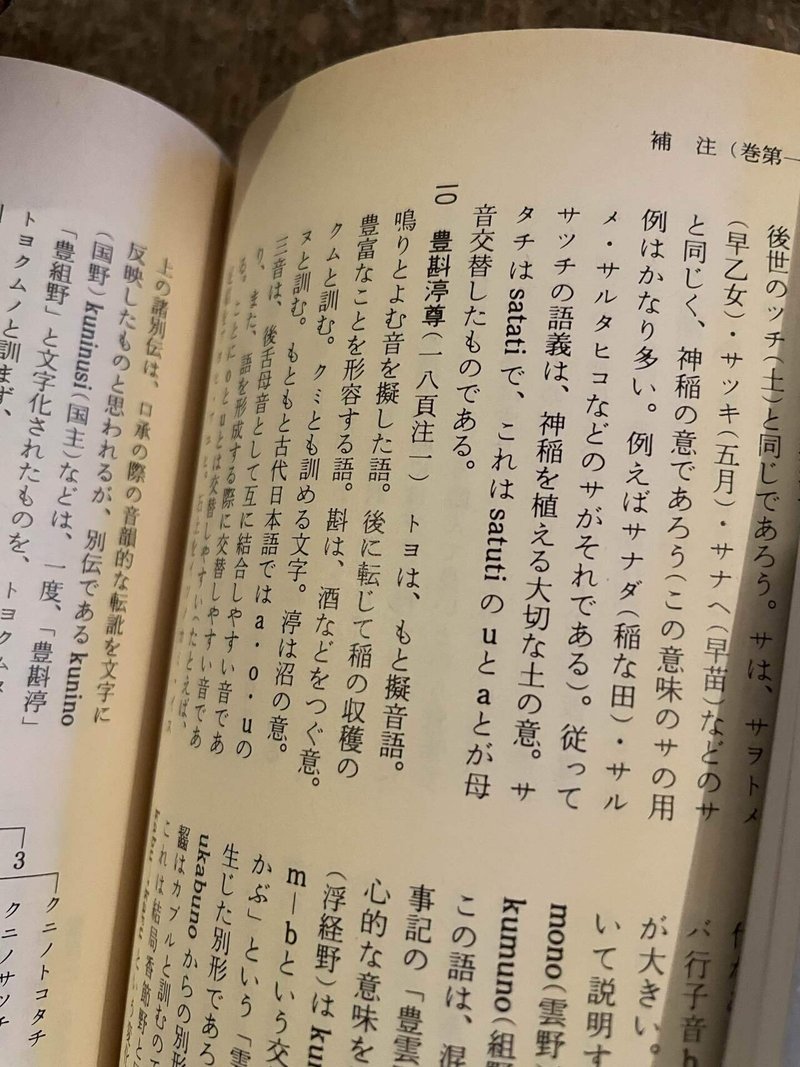 補 注(巻第一
後世のツチ(土)と同じであろう。サは、サヲトメ
(早乙女)・サツキ(五月)・サナヘ(早苗)などのサ
と同じく、神稲の意であろう(この意味のサの用
例はかなり多い。例えばサナダ(稲な田)・サル
メ・サルタヒコなどのサがそれである)。従って
サツチの語義は、神稲を植える大切な土の意。サ
タチはsatatiで、これはsatutiのuとaとが母
音交替したものである。
一〇 豊斟渟尊(一八頁注一) トヨは、もと擬音語。
鳴りとよむ音を擬した語。後に転じて稲の収穫の
豊富なことを形容する語。斟は、酒などをつぐ意。
クムと訓む。クミとも訓める文字。渟は沼の意。
ヌと訓む。もともと古代日本語ではa・o・uの
三音は、後舌母音として互に結合しやすい音であ
り、また、語を形成する際に交替しやすい音であ
る。ことにoとuとは交替しやすい(たとえば、
バ行子音b
が大きい。
いて説明す
mono(雲野)
kumuno(組野
この語は、混
事記の「豊雲
心的な意味を
(浮経野)はkun
m―bという交
かぶ」という「雲
生じた別形であろ
ukabunoからの別形
齧はカブルと訓むの
これは結局香節野と
上の諸別伝は、口承の際の音韻的な転訛を文字に
反映したものと思われるが、別伝であるkunino
(国野)kuninusi(国主)などは、一度、「豊斟渟」
「豊組野」と文字化されたものを、トヨクムヌ
トヨクムノと訓まず、
3
クニノトコタチ
クニノサツチ